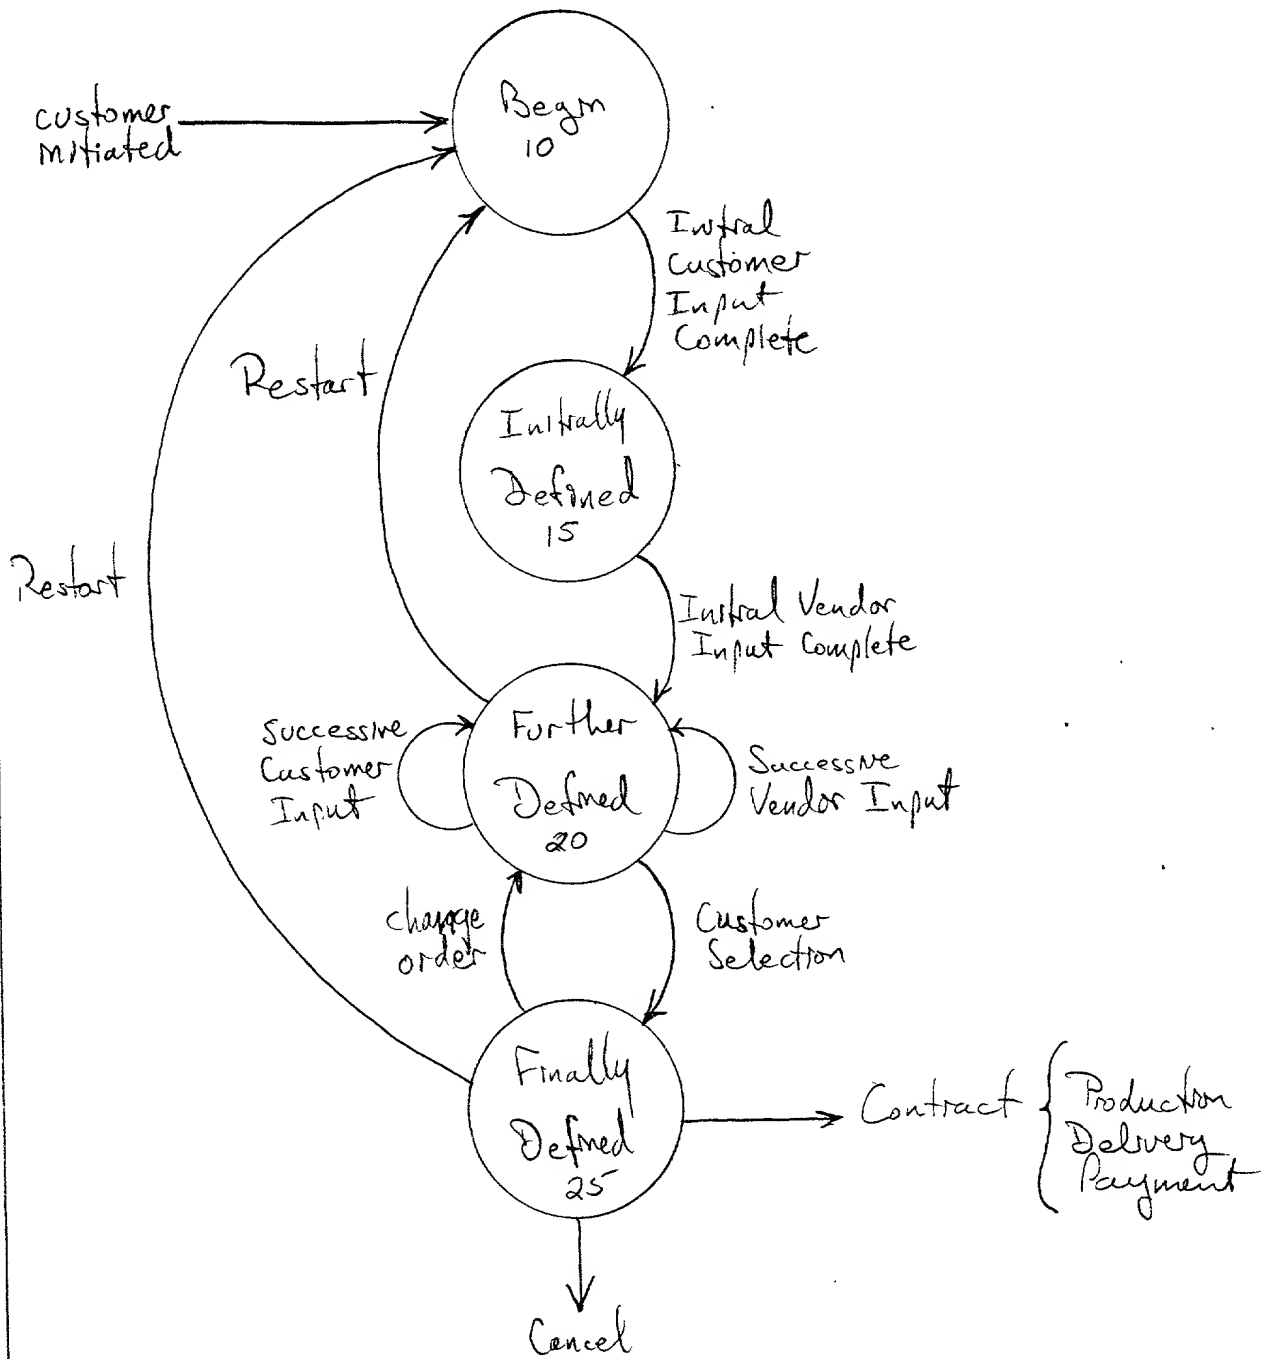 Begin
10
customer
initiated
Initial
Customer
Input
Complete
Restart
Initially
Defined
15
Restart
Initial Vendor
Input Complete
Successive
Customer
Input
Further
Defined
20
Successive
Vendor Input
change
order
Customer
Selection
Finally
Defined
25
Contract
Production
Delivery
Payment
Cancel